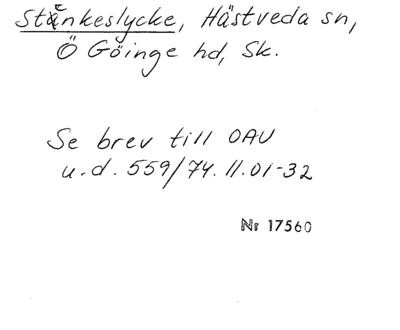 Stänkeslycke, Hästveda sn,
Ö Göinge hd, Sk.
Se brev till OAU
u.d. 559/74.11.01-32
Nr 17560